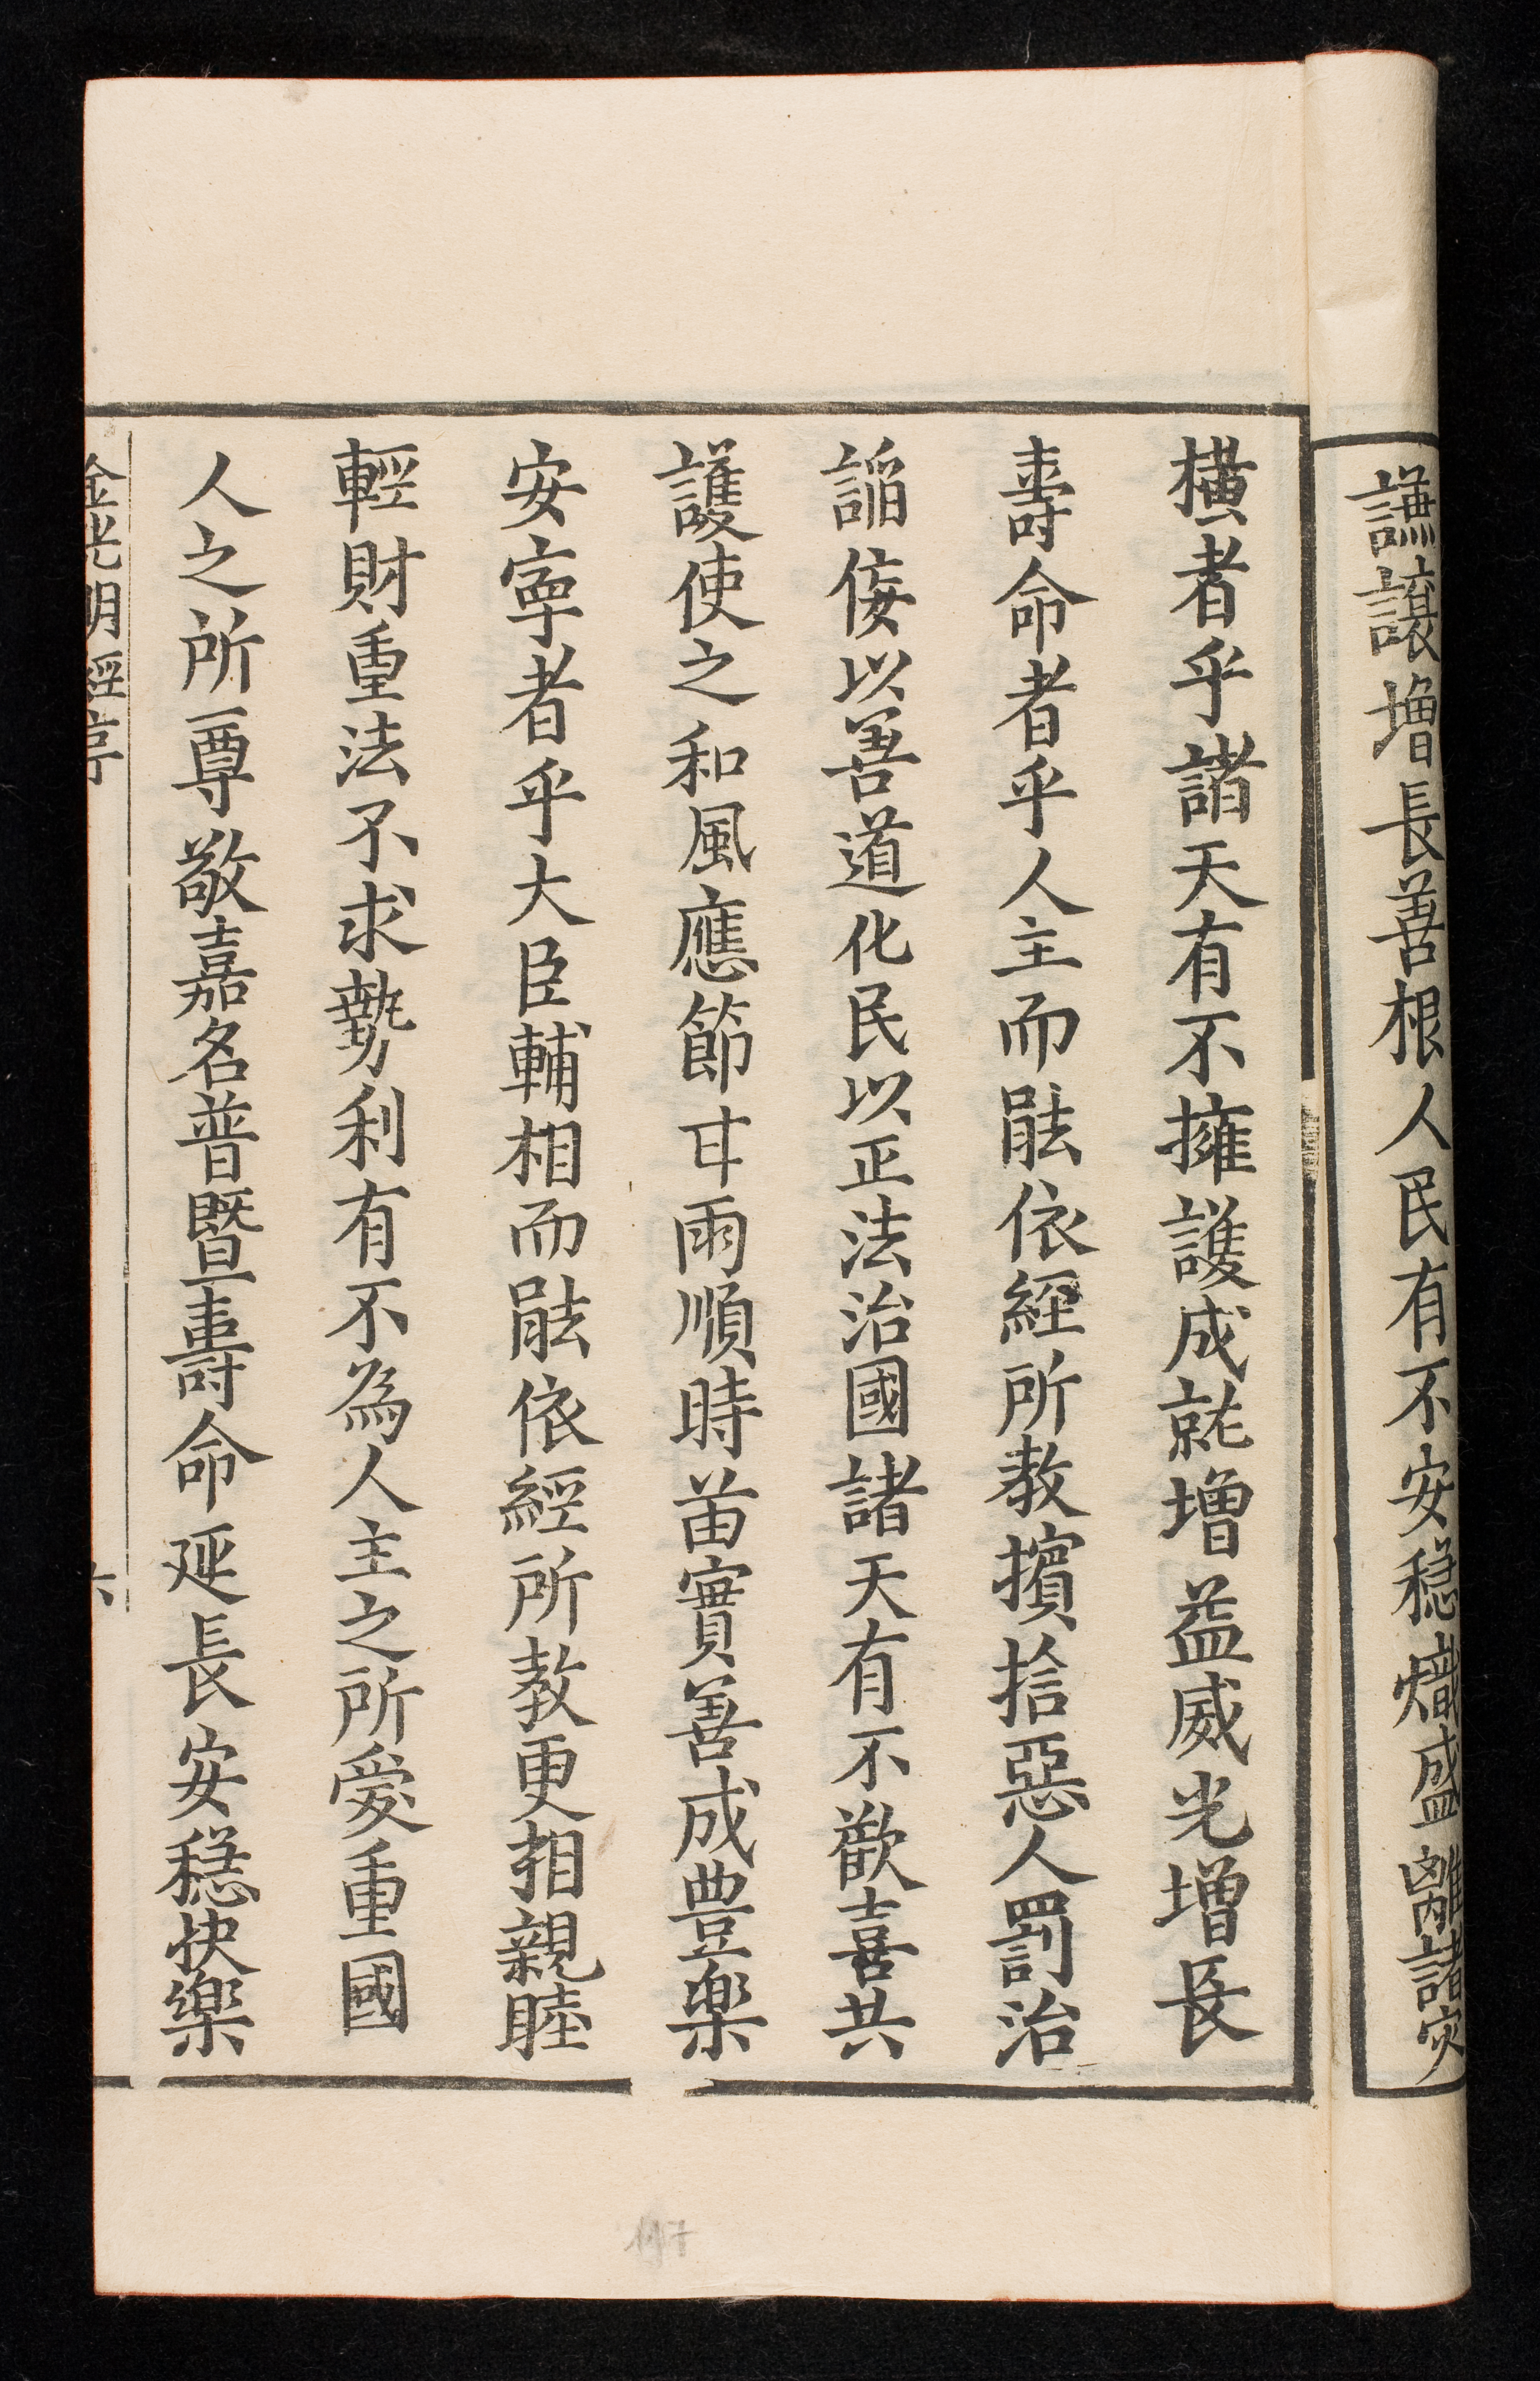 謙讓增長善根人民有不安穩熾盛離諸灾
橫者乎諸天有不擁護成就增益威光增長
壽命者乎人主而能依經所教擯捨惡人罰治
諂佞以善道化民以正法治國諸天有不歡喜共
護使之和風應節甘雨順時苗實善成豊樂
安寧者乎大臣輔相而能依經所教更相親睦
輕財重法不求勢利有不為人主之所愛重國
人之所尊敬嘉名普暨壽命延長安穩快樂
金光明經序
六